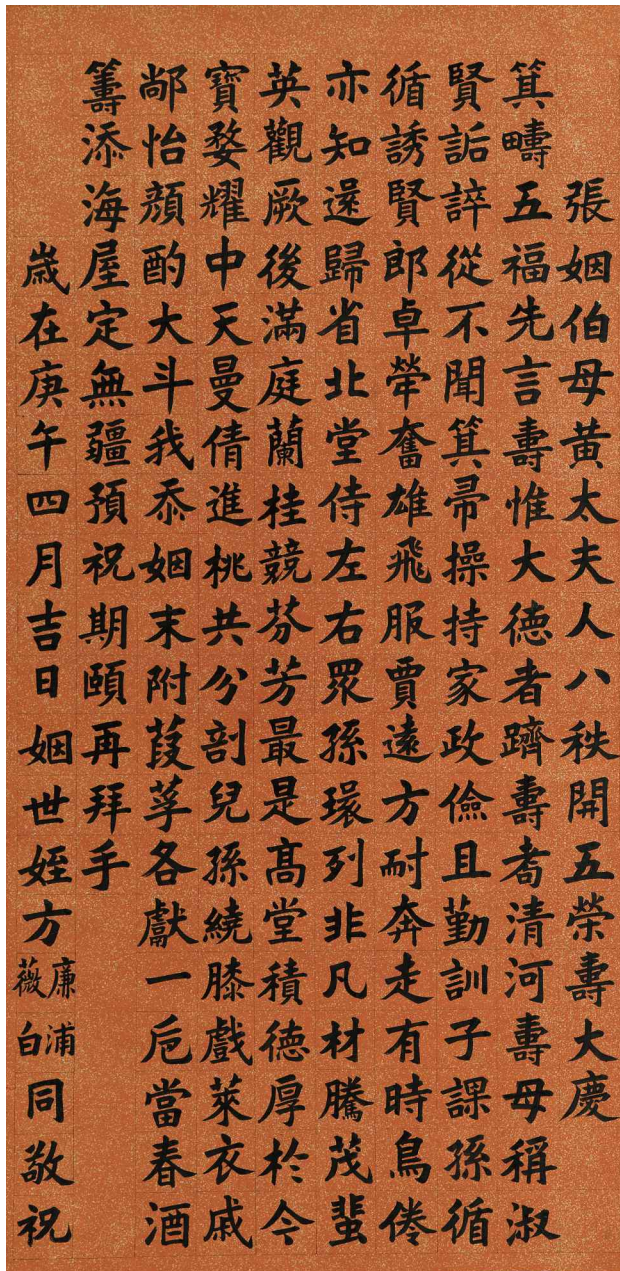 張姻伯母黄太夫人八秩開五榮壽大慶
箕疇五福先言壽惟大德者躋壽耇清河壽母稱淑
賢詬誶從不聞箕帚操持家政儉且勤訓子課孫循
循誘賢郎卓犖奮雄飛服賈遠方耐奔走有時鳥倦
亦知還歸省北堂侍左右眾孫環列非凡材騰茂蜚
英觀厥後滿庭蘭桂競芬芳最是高堂積德厚於今
寶婺耀中天曼倩進桃共分剖兒孫繞膝戲萊衣戚
䣊怡顏酌大斗我忝姻末附葭莩各獻一卮當春酒
籌添海屋定無疆預祝期頤再拜手
歲在庚午四月吉日姻世姪方廉浦薇白同敬祝